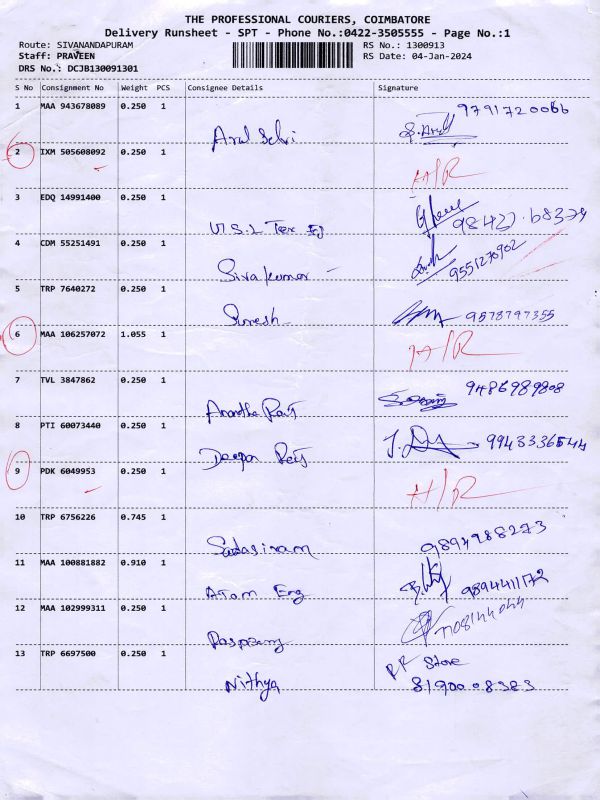 THE PROFESSIONAL COURIERS, COIMBATORE
Delivery Runsheet - SPT - Phone No.:0422-3505555 - Page No.:1
Route: SIVANANDAPURAM RS No.: 1300913
Staff: PRAVEEN RS Date: 04-Jan-2024
DRS No.: DCJB130091301
S No Consignment No Weight PCS Consignee Details Signature
1 MAA 943678089 0.250 1 9791720066
Arul Selvi
2 IXM 505608092 0.250 1 A/R
3 EDQ 14991400 0.250 1
4 CDM 55251491 0.250 1 9551270902
Sivakumar
5 TRP 7640272 0.250 1
Suresh 9578797355
6 MAA 106257072 1.055 1 A/R
7 TVL 3847862 0.250 1 9486989808
Anandha Raj
8 PTI 60073440 0.250 1 9943336544
Deepan Raj
9 PDK 6049953 0.250 1 A/R
10 TRP 6756226 0.745 1
Sadasivam 9894988273
11 MAA 100881882 0.910 1
Atom Eng 9894441172
12 MAA 102999311 0.250 1
13 TRP 6697500 0.250 1 Store
Nithya 8190008383